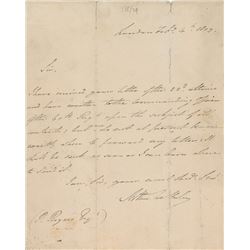 London Feb. 4th 1809
Sir,
I have received your letter of the 20th ultimo
and have written to the Commanding Officer
of the Regt upon the subject of it
but I do not at present know
where to forward my letter. It
shall be sent as soon as I can learn where
to send it.
I am, Sir, your most obedt Servt
Arthur Wellesley
Rogers Esqr